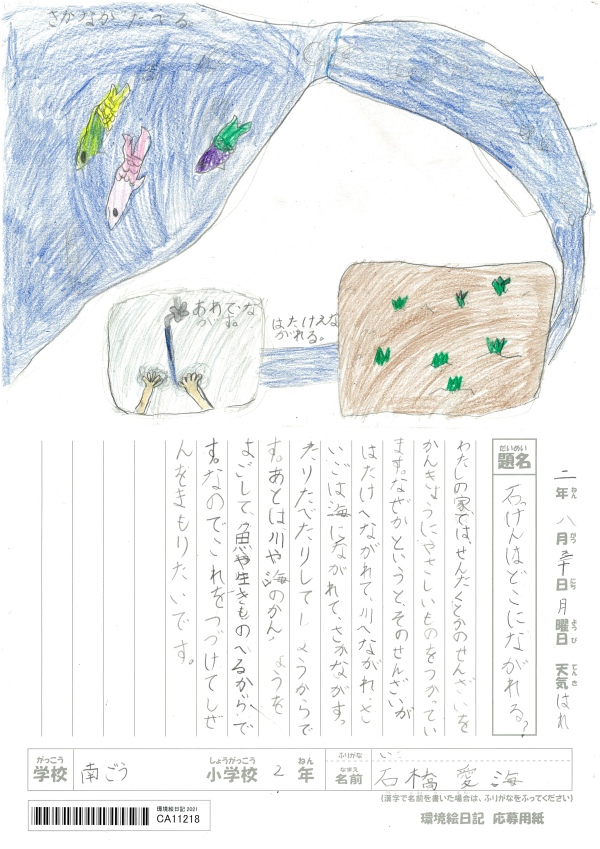 さかながたべる
あわでな
がす。
はたけえな
がれる。
二年 八月三十日 月曜日 天気 はれ
ねん がつ にち ようび てんき
だいめい
題名 石けんはどこにながれる?
わたしの家では、せんたくとかのせんざいを
かんきょうにやさしいものをつかってい
ます。なぜかというと、そのせんざいが
はたけへながれて、川へながれ、さ
いごは海にながれて、さかながす。
たりたべたりしてしょうからで
す。あとは、川や海のかん ょうを
よごして、魚や生きものへるからで
す。なのでこれをつづけてしぜ
んをまもりたいです。
がっこう しょうがっこう ねん
学校 南ごう 小学校 2年
ふりがな
なまえ
名前 石橋 愛海
(漢字で名前を書いた場合は、ふりがなをふってください)
環境絵日記 2021
CA11218
環境絵日記 応募用紙